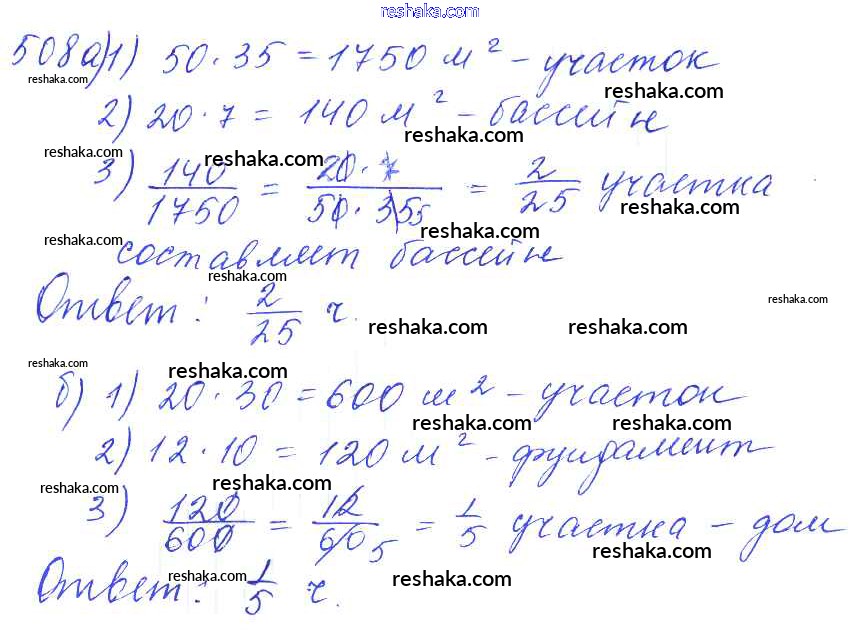 reshaka.com
508а)1) 50·35 = 1750 м² - участок
reshaka.com reshaka.com
2) 20·7 = 140 м² - бассейн
reshaka.com reshaka.com reshaka.com
3) 140/1750 = 20·7/50·35 5 = 2/25 участка
reshaka.com reshaka.com reshaka.com
составляет бассейн
reshaka.com reshaka.com
Ответ: 2/25 ч.
reshaka.com reshaka.com
reshaka.com reshaka.com
б) 1) 20·30 = 600 м² - участок
reshaka.com reshaka.com
2) 12·10 = 120 м² - фундамент
reshaka.com reshaka.com
3) 120/600 = 12/60 5 = 1/5 участка - дом
reshaka.com
Ответ: 1/5 ч.
reshaka.com reshaka.com